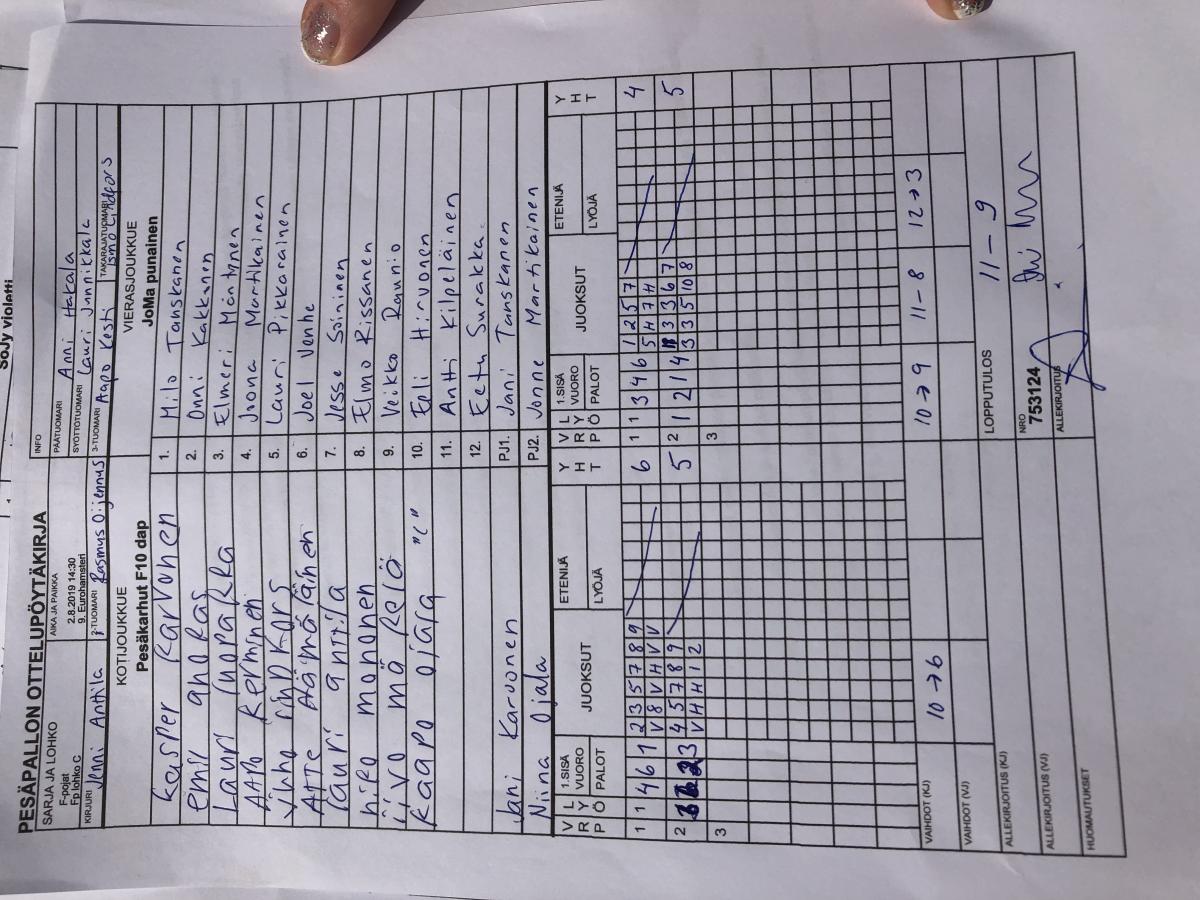 SoJy violetti
PESÄPALLON OTTELUPÖYTÄKIRJA
SARJA JA LOHKO
F-pojat
Fp lohko C
AIKA JA PAIKKA
2.8.2019 14:30
9. Eurohamsteri
INFO
PÄÄTUOMARI Anni Hakala
SYÖTTÖTUOMARI Lauri Junnikkala
KIRJURI Jenni Anttila
2-TUOMARI Rasmus Oijennus
3-TUOMARI Aapo Kesti
TAKARAJATUOMARI Ismo Lindfors
KOTIJOUKKUE
Pesäkarhut F10 dap
VIERASJOUKKUE
JoMa punainen
Kasper Karvonen
1. Milo Tanskanen
2. Onni Kakkonen
3. Elmeri Mäntynen
AAPO Kerminen
4. Joona Martikainen
5. Lauri Pikkarainen
ATTE Hämäläinen
6. Joel Venhe
Lauri anttila
7. Jesse Soininen
niko mononen
8. Elmo Rissanen
iivo mäkelä
9. Veikko Raunio
Kaapo ojara "C"
10. Eeli Hirvonen
11. Antti Kilpeläinen
12. Eetu Surakka
Jani Karvonen
PJ1. Jani Tanskanen
Niina Ojala
PJ2. Jonne Martikainen
V R P L Y Ö 1.SISÄ VUORO PALOT JUOKSUT ETENIJÄ LYÖJÄ Y H T
V R P L Y Ö 1.SISÄ VUORO PALOT JUOKSUT ETENIJÄ LYÖJÄ Y H T
1 1 4 6 1 2 3 5 7 8 9 6
V 8 V H V V
1 1 3 4 6 1 2 5 7 4
5 H 7 H
2 3 4 5 7 8 9 5
V H H 1 2
2 1 2 1 4 3 3 6 7 5
3 3 5 10 8
3
3
VAIHDOT (KJ) 10→6 10→9 11-8 12→3
VAIHDOT (VJ)
ALLEKIRJOITUS (KJ)
LOPPUTULOS 11 - 9
ALLEKIRJOITUS (VJ)
NRO
753124
HUOMAUTUKSET
ALLEKIRJOITUS